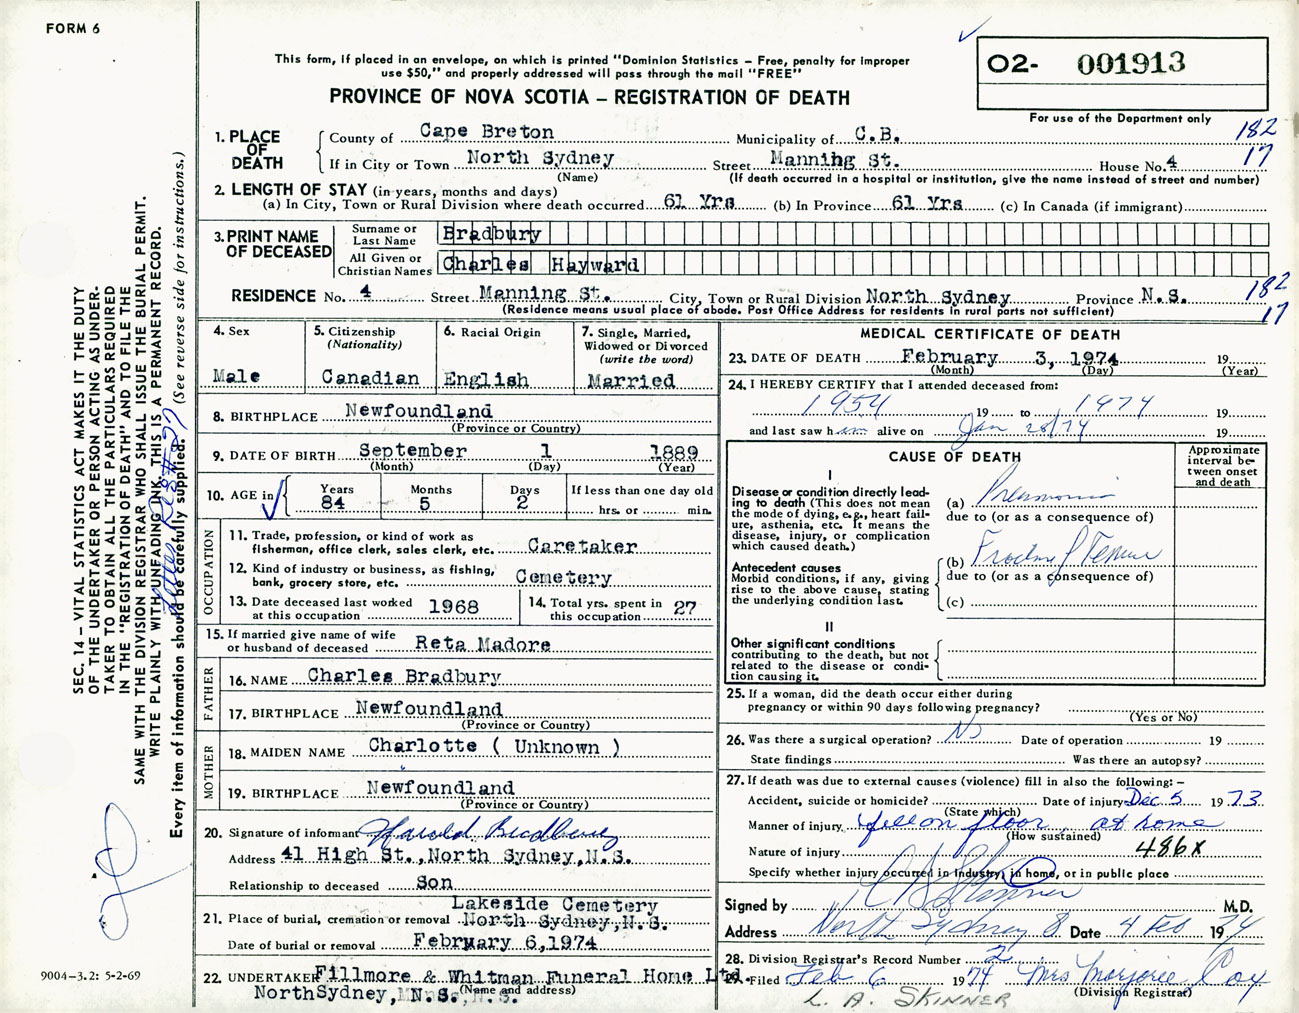 FORM 6
This form, if placed in an envelope, on which is printed "Dominion Statistics – Free, penalty for improper
use $50," and properly addressed will pass through the mail "FREE"
PROVINCE OF NOVA SCOTIA – REGISTRATION OF DEATH
02- 001913
For use of the Department only
1. PLACE OF DEATH
County of Cape Breton Municipality of C.B. 182
If in City or Town North Sydney Street Manning St. House No. 4 17
(Name) (If death occurred in a hospital or institution, give the name instead of street and number)
2. LENGTH OF STAY (in years, months and days)
(a) In City, Town or Rural Division where death occurred 61 Yrs (b) In Province 61 Yrs (c) In Canada (if immigrant)
3. PRINT NAME OF DECEASED
Surname or Last Name Bradbury
All Given or Christian Names Charles Hayward
RESIDENCE No. 4 Street Manning St. City, Town or Rural Division North Sydney Province N.S. 182
(Residence means usual place of abode. Post Office Address for residents in rural parts not sufficient) 17
4. Sex
Male
5. Citizenship
(Nationality)
Canadian
6. Racial Origin
English
7. Single, Married,
Widowed or Divorced
(write the word)
Married
8. BIRTHPLACE Newfoundland
(Province or Country)
9. DATE OF BIRTH September 1 1889
(Month) (Day) (Year)
10. AGE in
Years 84
Months 5
Days 2
If less than one day old
hrs. or min.
OCCUPATION
11. Trade, profession, or kind of work as
fisherman, office clerk, sales clerk, etc. Caretaker
12. Kind of industry or business, as fishing,
bank, grocery store, etc. Cemetery
13. Date deceased last worked
at this occupation 1968
14. Total yrs. spent in
this occupation 27
15. If married give name of wife
or husband of deceased Reta Madore
FATHER
16. NAME Charles Bradbury
17. BIRTHPLACE Newfoundland
(Province or Country)
MOTHER
18. MAIDEN NAME Charlotte ( Unknown )
19. BIRTHPLACE Newfoundland
(Province or Country)
20. Signature of informant Harold Bradbury
Address 41 High St., North Sydney, N.S.
Relationship to deceased Son
Lakeside Cemetery
21. Place of burial, cremation or removal North Sydney, N.S.
Date of burial or removal February 6, 1974
22. UNDERTAKER Fillmore & Whitman Funeral Home Ltd.
(Name and address)
North Sydney, N.S.
MEDICAL CERTIFICATE OF DEATH
23. DATE OF DEATH February 3, 1974 19
(Month) (Day) (Year)
24. I HEREBY CERTIFY that I attended deceased from:
1954 19 to 1974 19
and last saw him alive on Jan 28/74 19
CAUSE OF DEATH
Approximate
interval be-
tween onset
and death
I
Disease or condition directly lead-
ing to death (This does not mean
the mode of dying, e.g., heart fail-
ure, asthenia, etc. It means the
disease, injury, or complication
which caused death.)
(a) Pneumonia
due to (or as a consequence of)
Antecedent causes
Morbid conditions, if any, giving
rise to the above cause, stating
the underlying condition last.
(b) Fracture of Femur
due to (or as a consequence of)
(c)
II
Other significant conditions
contributing to the death, but not
related to the disease or condi-
tion causing it.
25. If a woman, did the death occur either during
pregnancy or within 90 days following pregnancy?
(Yes or No)
26. Was there a surgical operation? No Date of operation 19
State findings Was there an autopsy?
27. If death was due to external causes (violence) fill in also the following: –
Accident, suicide or homicide? Date of injury Dec 5 1973
(State which)
Manner of injury fell on floor at home
(How sustained)
Nature of injury 486X
Specify whether injury occurred in industry, in home, or in public place
Signed by Skinner M.D.
Address North Sydney Date 4 Feb 1974
28. Division Registrar's Record Number 2
29. Filed Feb 6 1974 Mrs Marjorie Coy
(Division Registrar)
L. A. SKINNER
SEC. 14 – VITAL STATISTICS ACT MAKES IT THE DUTY
OF THE UNDERTAKER OR PERSON ACTING AS UNDER-
TAKER TO OBTAIN ALL THE PARTICULARS REQUIRED
IN THE "REGISTRATION OF DEATH" AND TO FILE THE
SAME WITH THE DIVISION REGISTRAR WHO SHALL ISSUE THE BURIAL PERMIT.
WRITE PLAINLY WITH UNFADING INK. THIS IS A PERMANENT RECORD.
Every item of information should be carefully supplied. (See reverse side for instructions.)
9004-3.2: 5-2-69